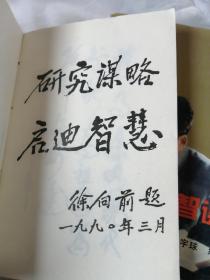 研究谋略
启迪智慧
徐向前题
一九九〇年三月
智谋